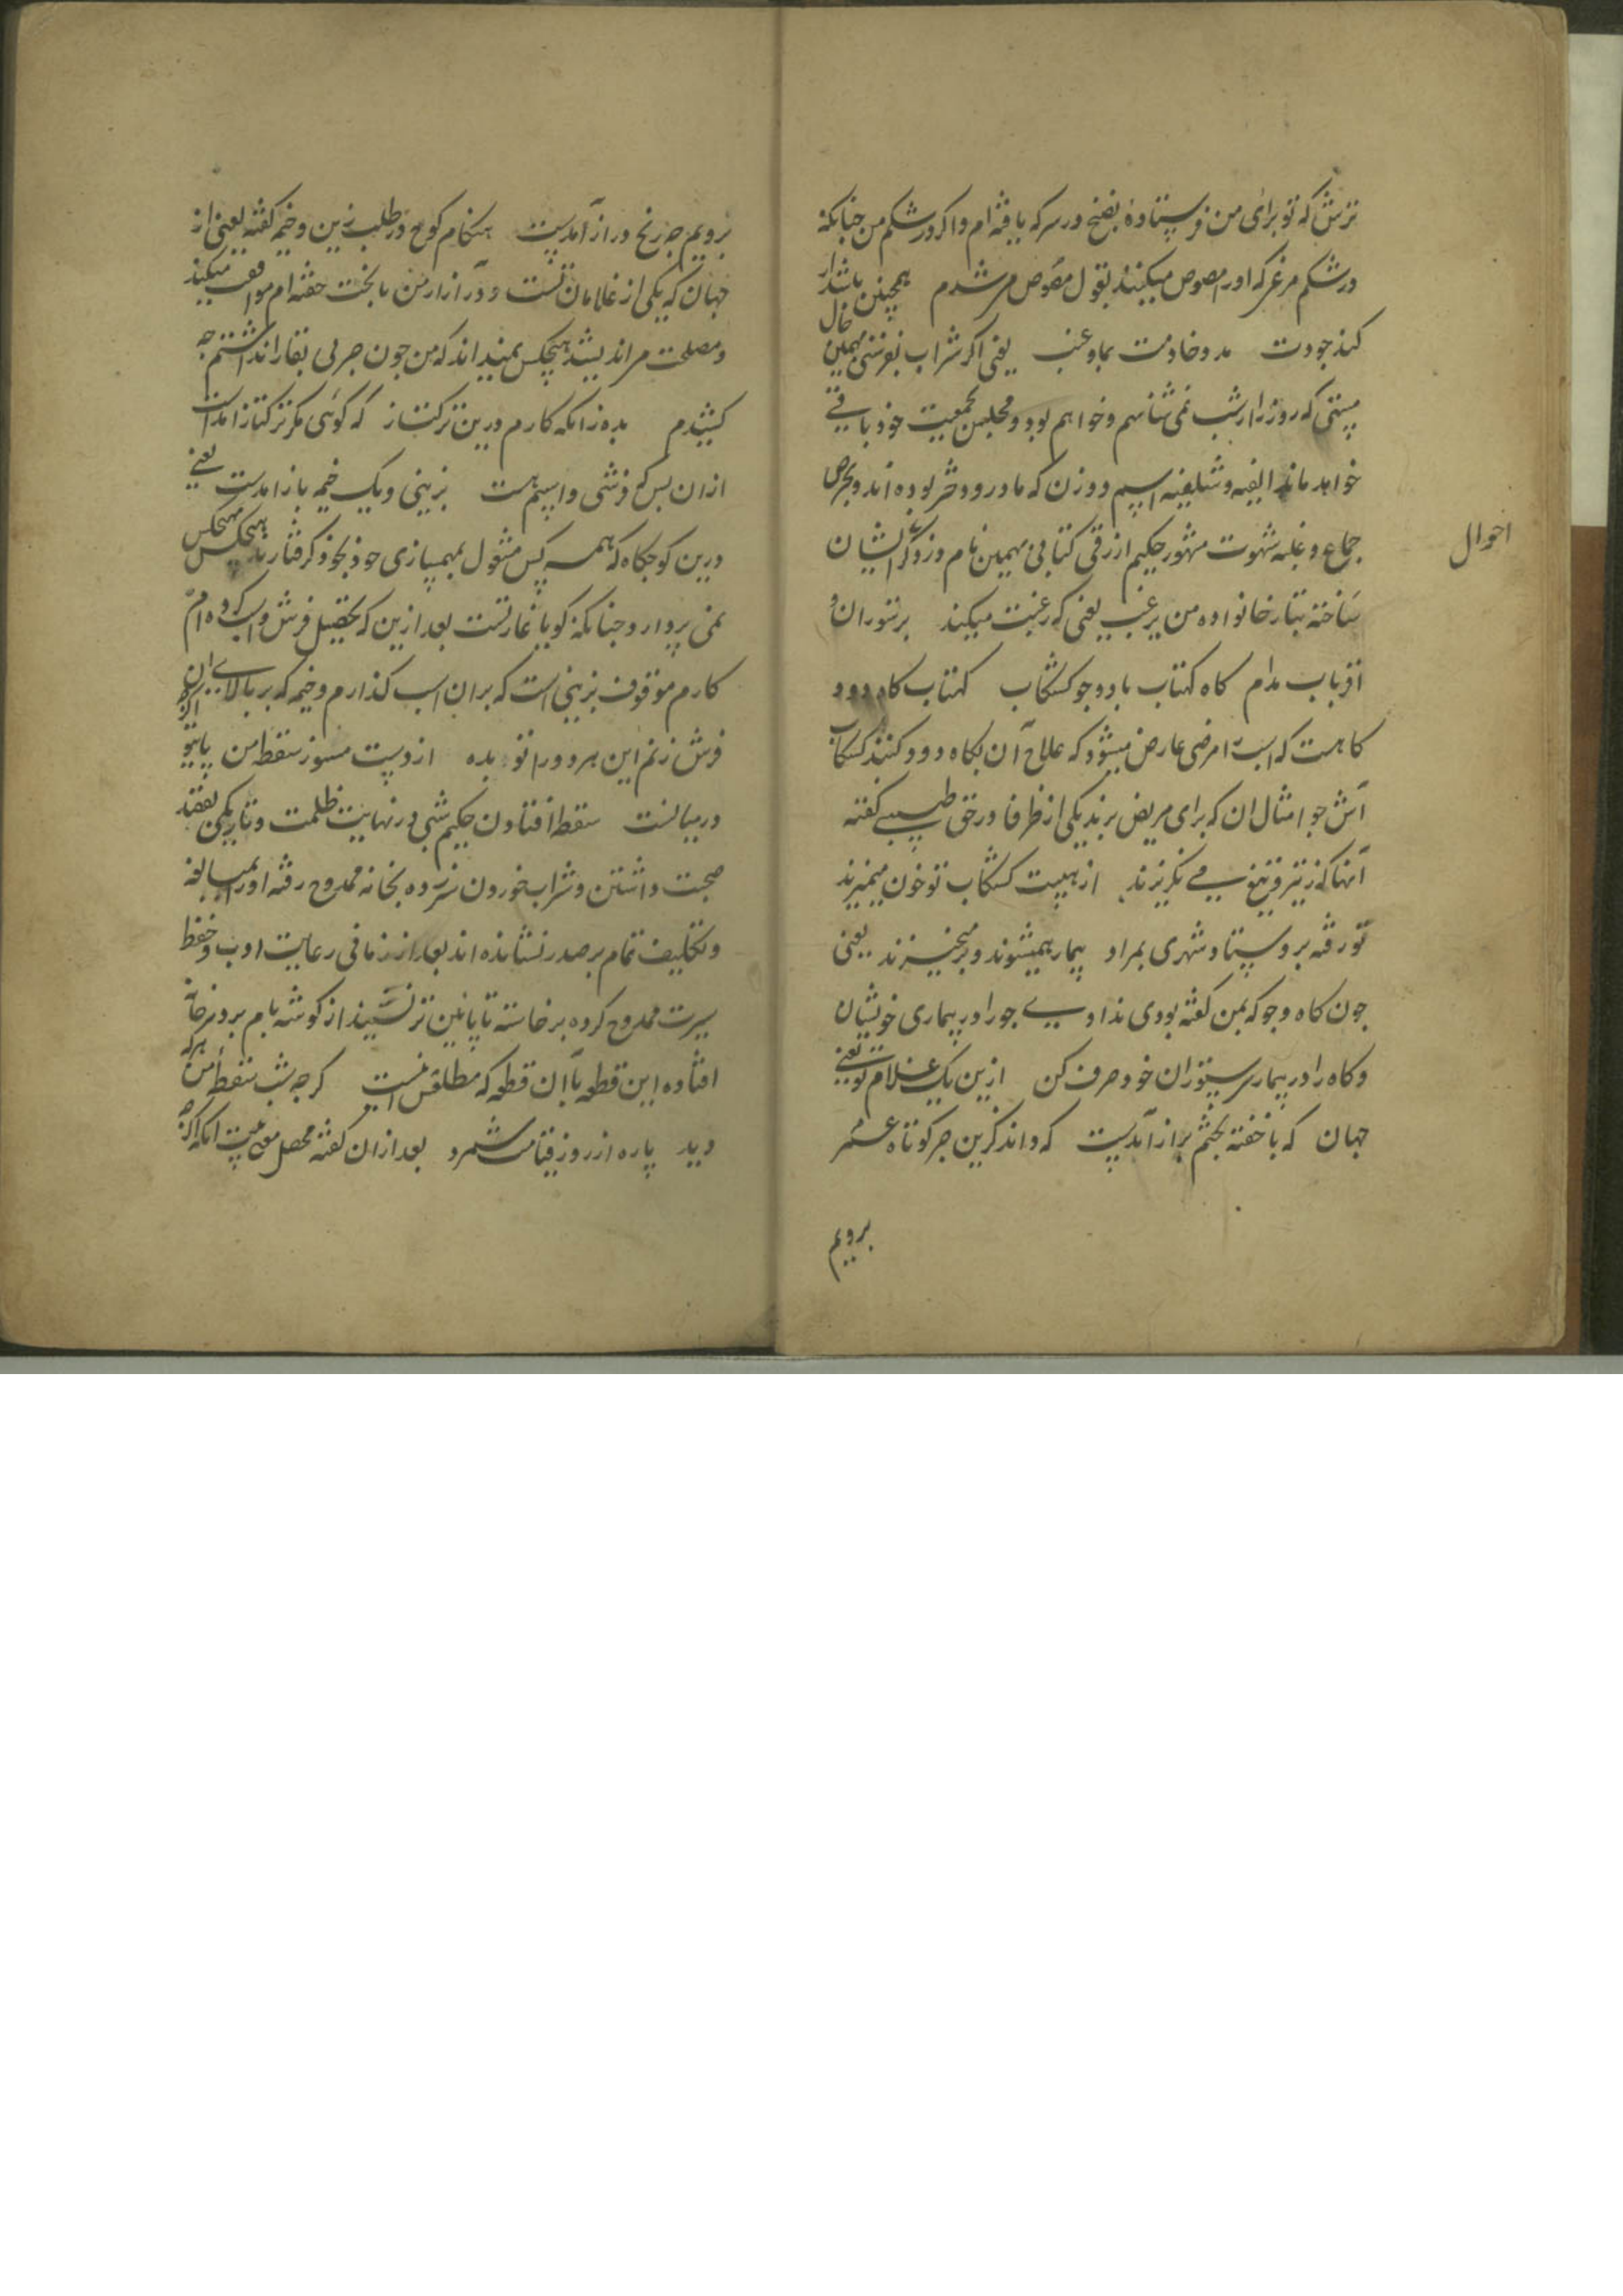 ترش که تو برای من فرستادهٔ بصنج در سرکه یافته ام واکر در شکم من جنانکه
در شکم مرغ که اورا مصوص میکنند بقول مصوص مر شدم همچنین باشد ار
کند جودت مدد خادمت بماء عنب یعنی اکر شراب نفرستی بهمین حال
مستی که روز را از شب نمی شناسم و خواهم بود و مجلس جمعیت خود باقے
خواهد ماند الفیه و شلفیه اسم دو زن که مادر و دختر بوده اند و بحرص
جماع و غلبه شهوت مشهور حکیم ازرقی کتابی بهمین نام در ذکر ایشان
احوال
ساخته بتبار خانواده من یرغب یعنی که رغبت میکند بر ستوران و
اقربات مدام کاه کهتاب باد و جو کشکاب کهتاب کاه دود
کاهست که اسب را مرضی عارض میشود که علاج آن بکاه دود کنند کشکاب
آش جو امثال ان که برای مریض برند یکی از ظرفا در حق طبیبے کفته
آنها که ز تیر و تیغ مے نکریزند از هیبت کشکاب تو خون میمیزند
تو رفته بروستا و شهری بمراد بیمار همیشوند و برمیخیزند یعنی
جون کاه و جو که بمن کفته بودی ندادے جو را در بیماری خویشان
و کاه را در بیماری ستوران خود صرف کن ازین یک غلام تو یعنے
جهان که با خفته بختم براز آمدست که داند کزین جر کوتاه عمر
برویم
برویم جه رنج دراز آمدست هنکام کوج در طلب زین و خیمه کفته یعنی از
جهان که یکی از غلامان تست و در آزار من با بخت خفته ام موافقت میکند
و مصلحت مر اندیشد هیچکس نمیداند که من جون جر بی بقا را نداشتم جه
کشیدم بده زانکه کارم درین ترکتاز که کوئی مکر ترکتاز امدست
ازان بس که فرشی و اسپم هست بزینی و یک خیمه باز امدست یعنے
درین کوجکاه که همه کس مشغول بمهمسازی خود بخود کرفتارند هیچکس بهیچکس
نمی پردازد جنانکه کویا غارتست بعد ازین که تحصیل فرش و اسب کرده ام
کارم موقوف بزینی است که بران اسب کذارم و خیمه که بر بالای ان
فرش زنم این هر دو را تو بده از دست مسوز سقط من یا تو
در میانست سقط افتادن حکیم شبی در نهایت ظلمت و تاریکی بقصد
صحبت داشتن و شراب خوردن نزده بخانه ممدوح رفته اورا بمبالغه
و تکلیف تمام بر صدر نشانده اند بعد از زمانی رعایت ادب و حفظ
سیرت ممدوح کرده برخاسته تا پائین تر نشیند از کوشه بام بر در خانه
افتاده این قطعه با ان قطعه که مطلعش اینست کر جه شب سقطهٔ من هر که
دید پاره از روز قیامت شمرد بعد ازان کفته محصل معنی بیت انکه اکر جه